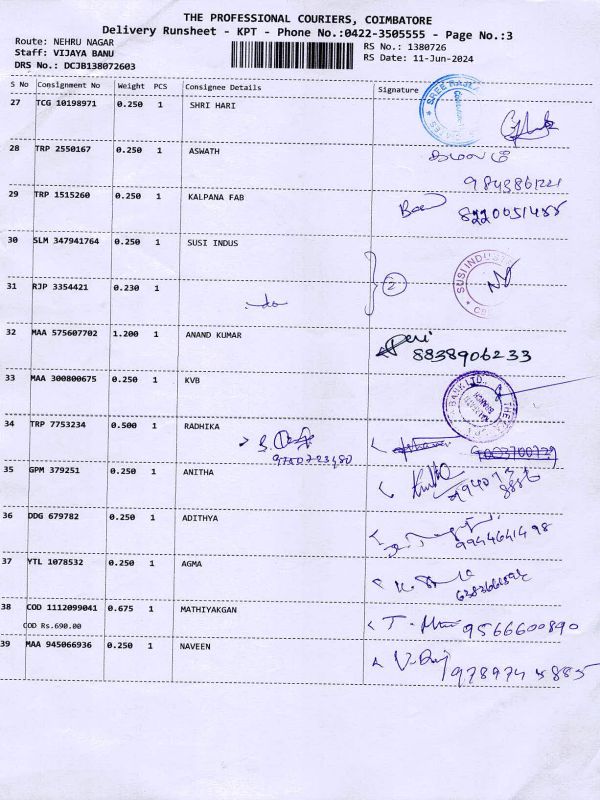 THE PROFESSIONAL COURIERS, COIMBATORE
Delivery Runsheet - KPT - Phone No.:0422-3505555 - Page No.:3
Route: NEHRU NAGAR
RS No.: 1380726
Staff: VIJAYA BANU
RS Date: 11-Jun-2024
DRS No.: DCJB138072603
S No Consignment No Weight PCS Consignee Details Signature
27 TCG 10198971 0.250 1 SHRI HARI
28 TRP 2550167 0.250 1 ASWATH
29 TRP 1515260 0.250 1 KALPANA FAB
30 SLM 347941764 0.250 1 SUSI INDUS
SUSI INDUST
31 RJP 3354421 0.230 1 -do- 2
32 MAA 575607702 1.200 1 ANAND KUMAR
8838906233
33 MAA 300800675 0.250 1 KVB
BANK LTD., THE
34 TRP 7753234 0.500 1 RADHIKA
9750723480
35 GPM 379251 0.250 1 ANITHA
36 DDG 679782 0.250 1 ADITHYA
9944641498
37 YTL 1078532 0.250 1 AGMA
38 COD 1112099041 0.675 1 MATHIYAKGAN
COD Rs.690.00
9566600890
39 MAA 945066936 0.250 1 NAVEEN